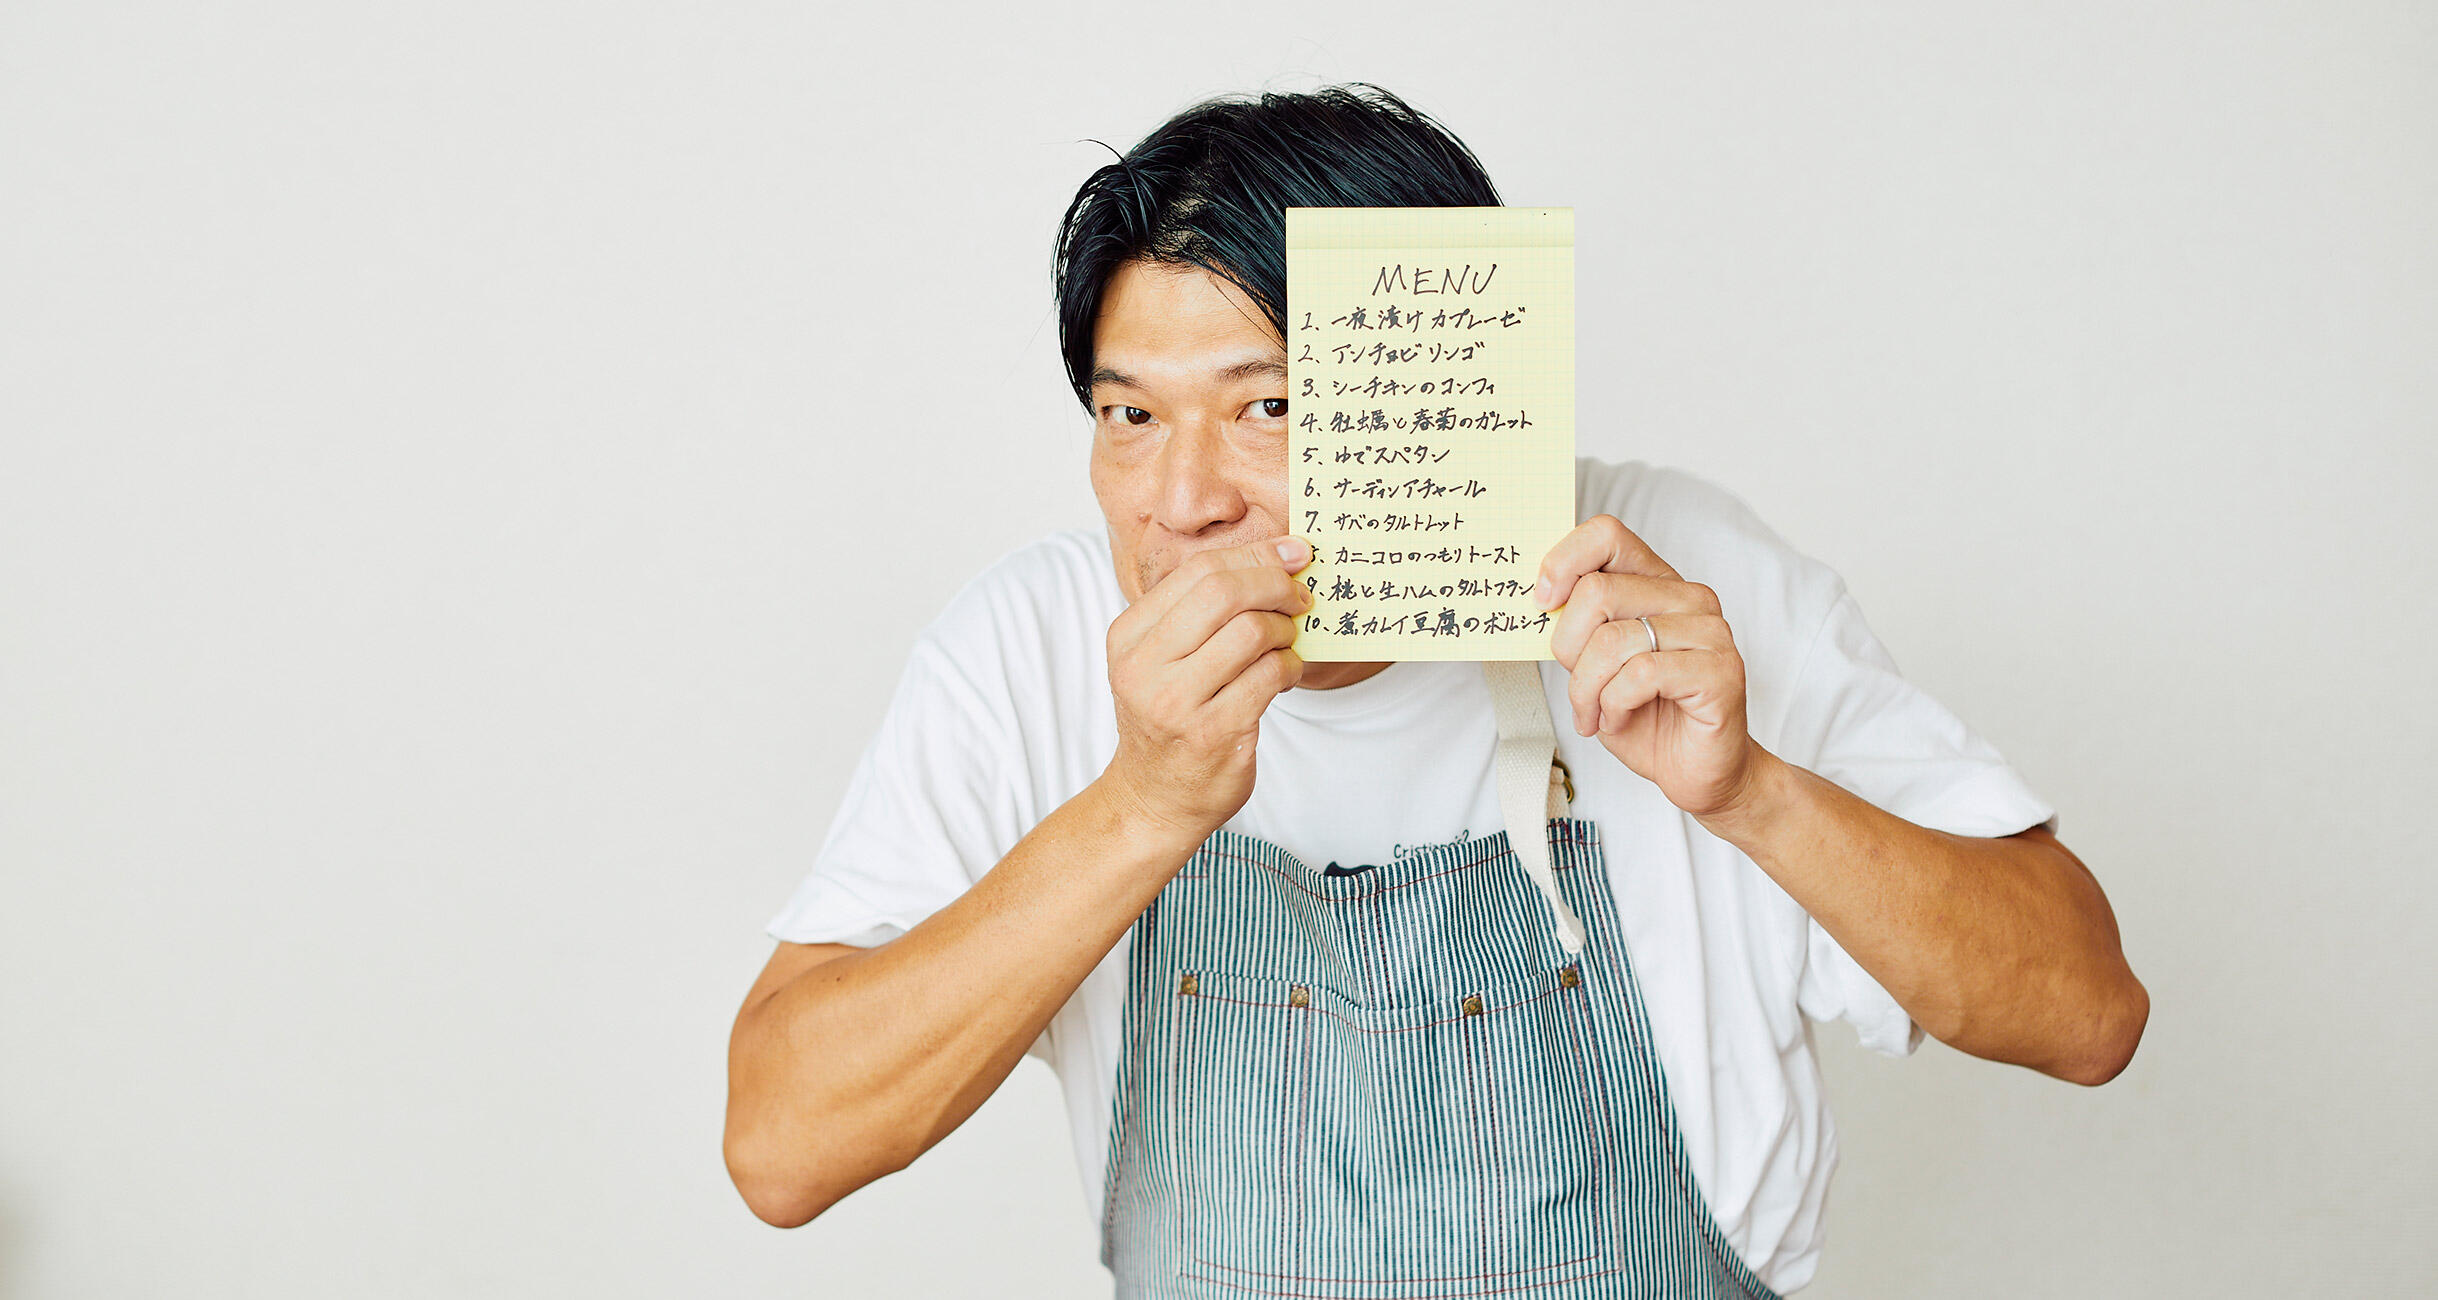 MENU
1、一夜漬けカプレーゼ
2、アンチョビリンゴ
3、シーチキンのコンフィ
4、牡蠣と春菊のガレット
5、ゆでスパタン
6、サーディンアチャール
7、サバのタルトレット
8、カニコロのつもりトースト
9、桃と生ハムのタルトフラン
10、煮カレイ豆腐のボルシチ